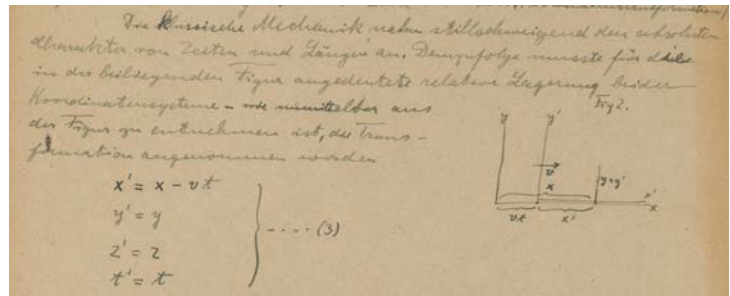 Die klassische Mechanik nahm stillschweigend den absoluten
Charakter von Zeiten und Längen an. Demzufolge musste für die
in der beiliegenden Figur angedeutete relative Lagerung beider
Koordinatensysteme - wie unmittelbar aus
der Figur zu entnehmen ist, die Trans-
formation angenommen werden
Fig 2.
x' = x - vt
y' = y
z' = z
t' = t
.... (3)
y y'
v
x
y=y'
x'
x
vt x'